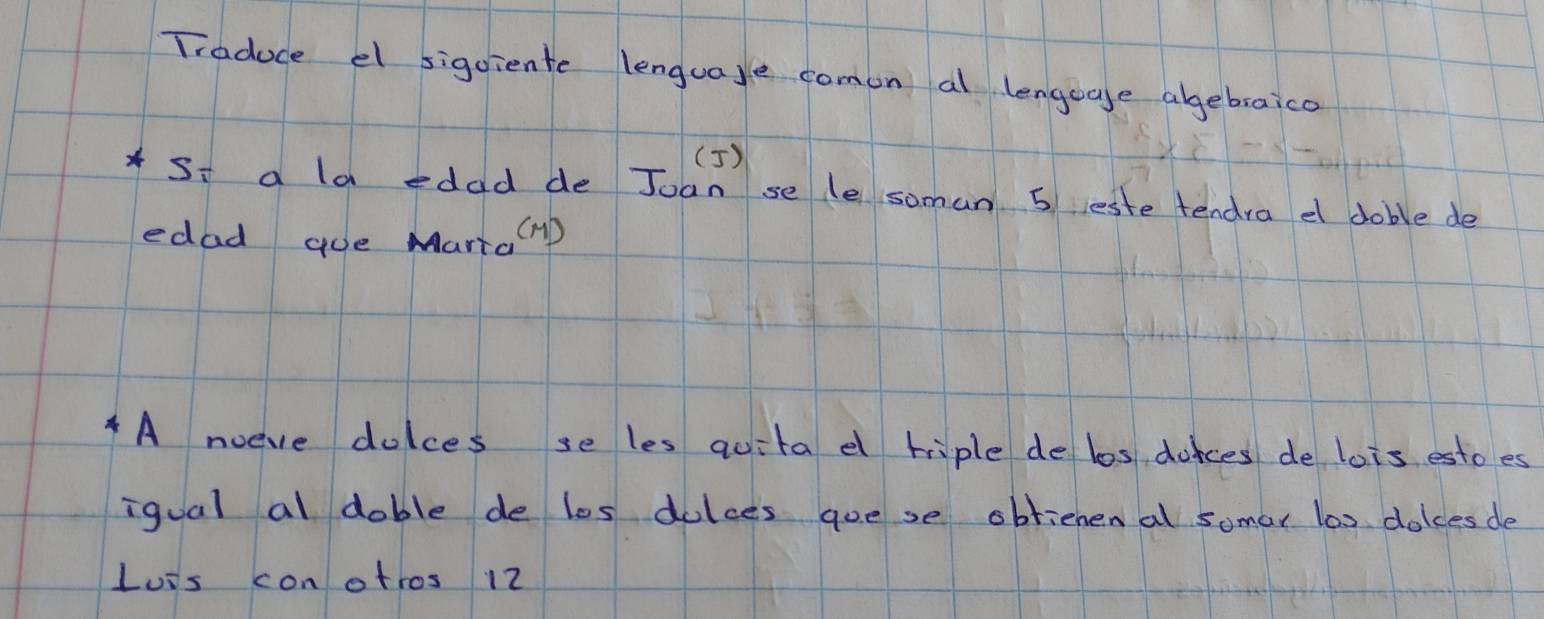 Traduce el siguiente lenguaje comun al lenguaje algebraico
* Si a la edad de Juan (J) se le suman 5 este tendra el doble de
edad que Maria (M)
* A nueve dulces se les quita el triple de los dulces de luis esto es
igual al doble de los dulces que se obtienen al sumar los dulces de
Luis con otros 12